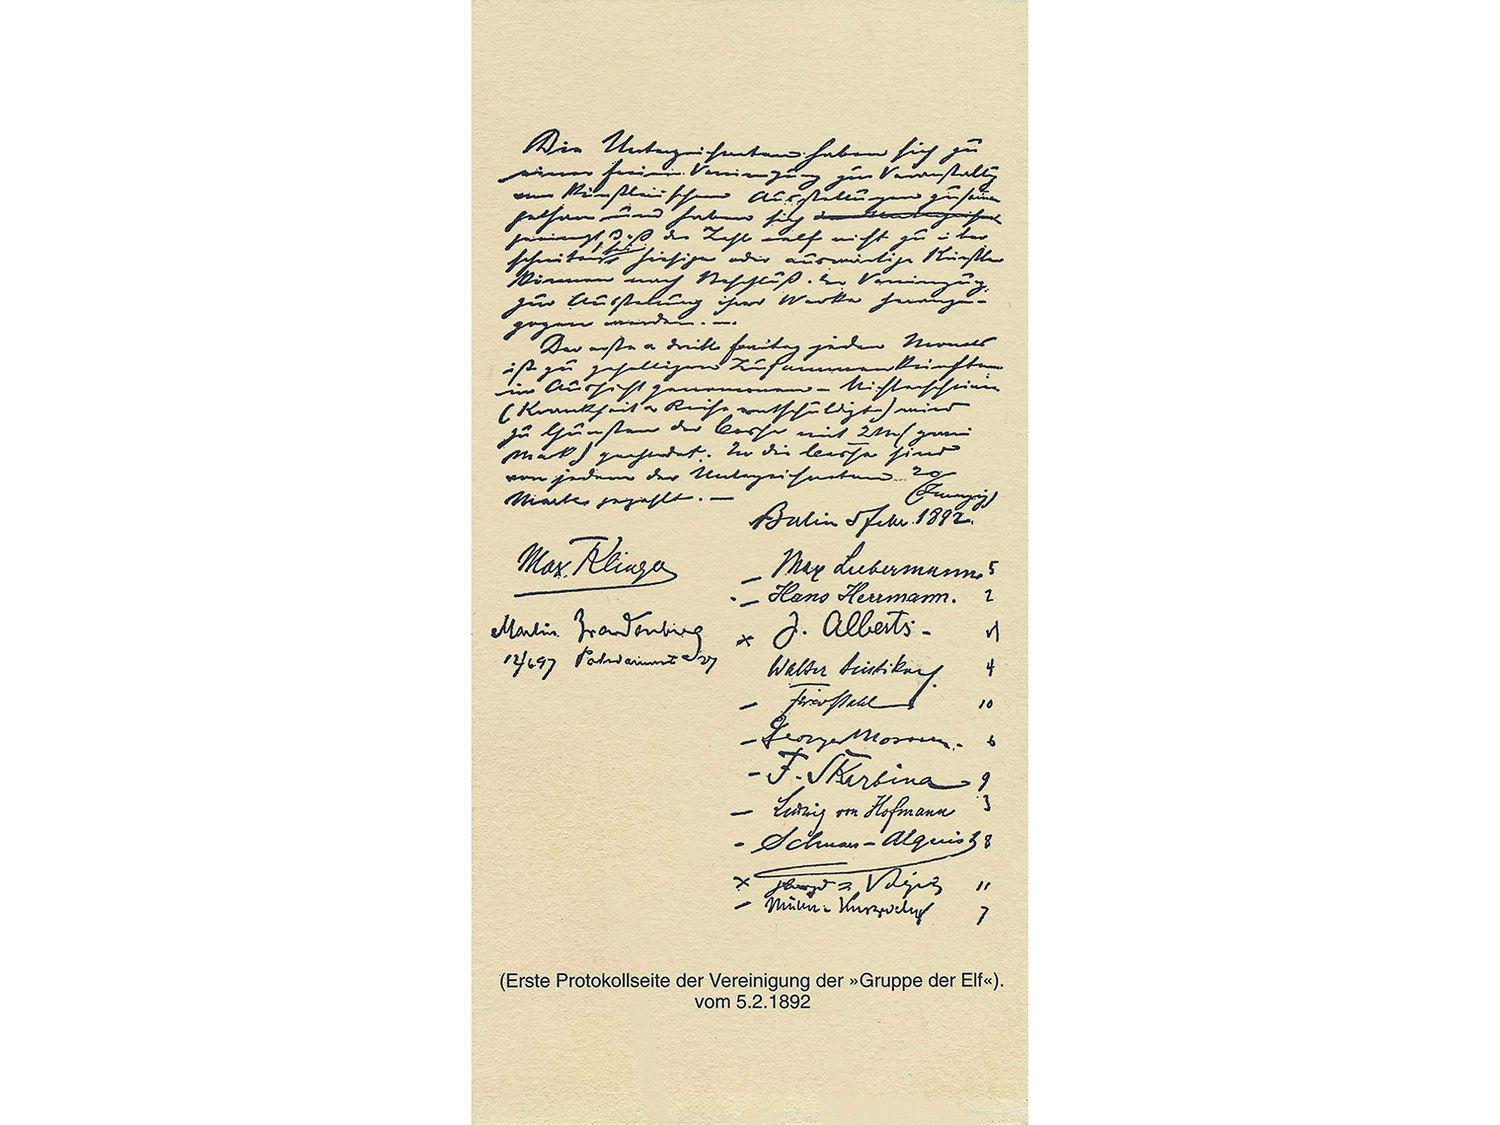 Die Unterzeichneten haben sich zu
einer freien Vereinigung zur Veranstaltg
von künstlerischen Ausstellungen zusam̅en
gethan und haben sich
geeinigt daß die Zahl elf nicht zu über
schreiten hiesige oder auswärtige Künstler
können nach Beschluß der Vereinigug.
zur Ausstellung ihrer Werke herange-
zogen werden. —.
Der erste u dritte Freitag jeden Monats
ist zu geselligen Zusammenkünften
in Aussicht genommen – Nichterscheinen
(Krankheit u Reise entschuldigt) wird
zu Gunsten der Casse mit 2 M (zwei
Mark) geahndet. In die Casse sind
von jedem der Unterzeichneten 20
(Zwanzig)
Mark gezahlt. —
Berlin 5 Febr. 1892.
Max Klinger
Martin Brandenburg
12/6 97
Max Liebermann 5
– Hans Herrmann. 2
x J. Alberts –
Walter Leistikow. 4
– 10
– George Mosson. 6
– F. Skarbina 9
– Ludwig von Hofmann 3
– Schnars-Alquist 8
x 11
– Müller-Kurzwelly 7
(Erste Protokollseite der Vereinigung der »Gruppe der Elf«).
vom 5.2.1892